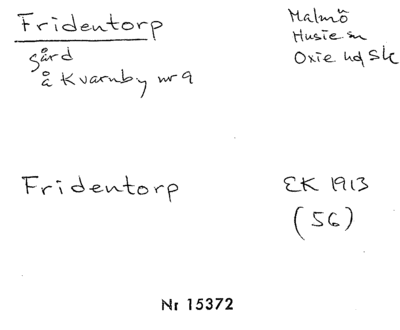 Fridentorp
gård
å Kvarnby nr 9
Malmö
Husie sn
Oxie hd Sk
Fridentorp
EK 1913
(56)
Nr 15372